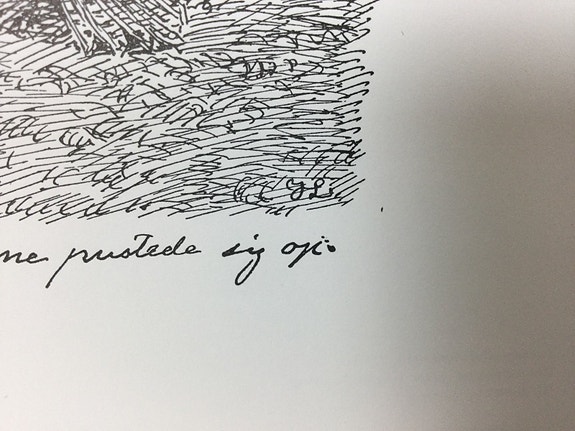 ne pustede sig op